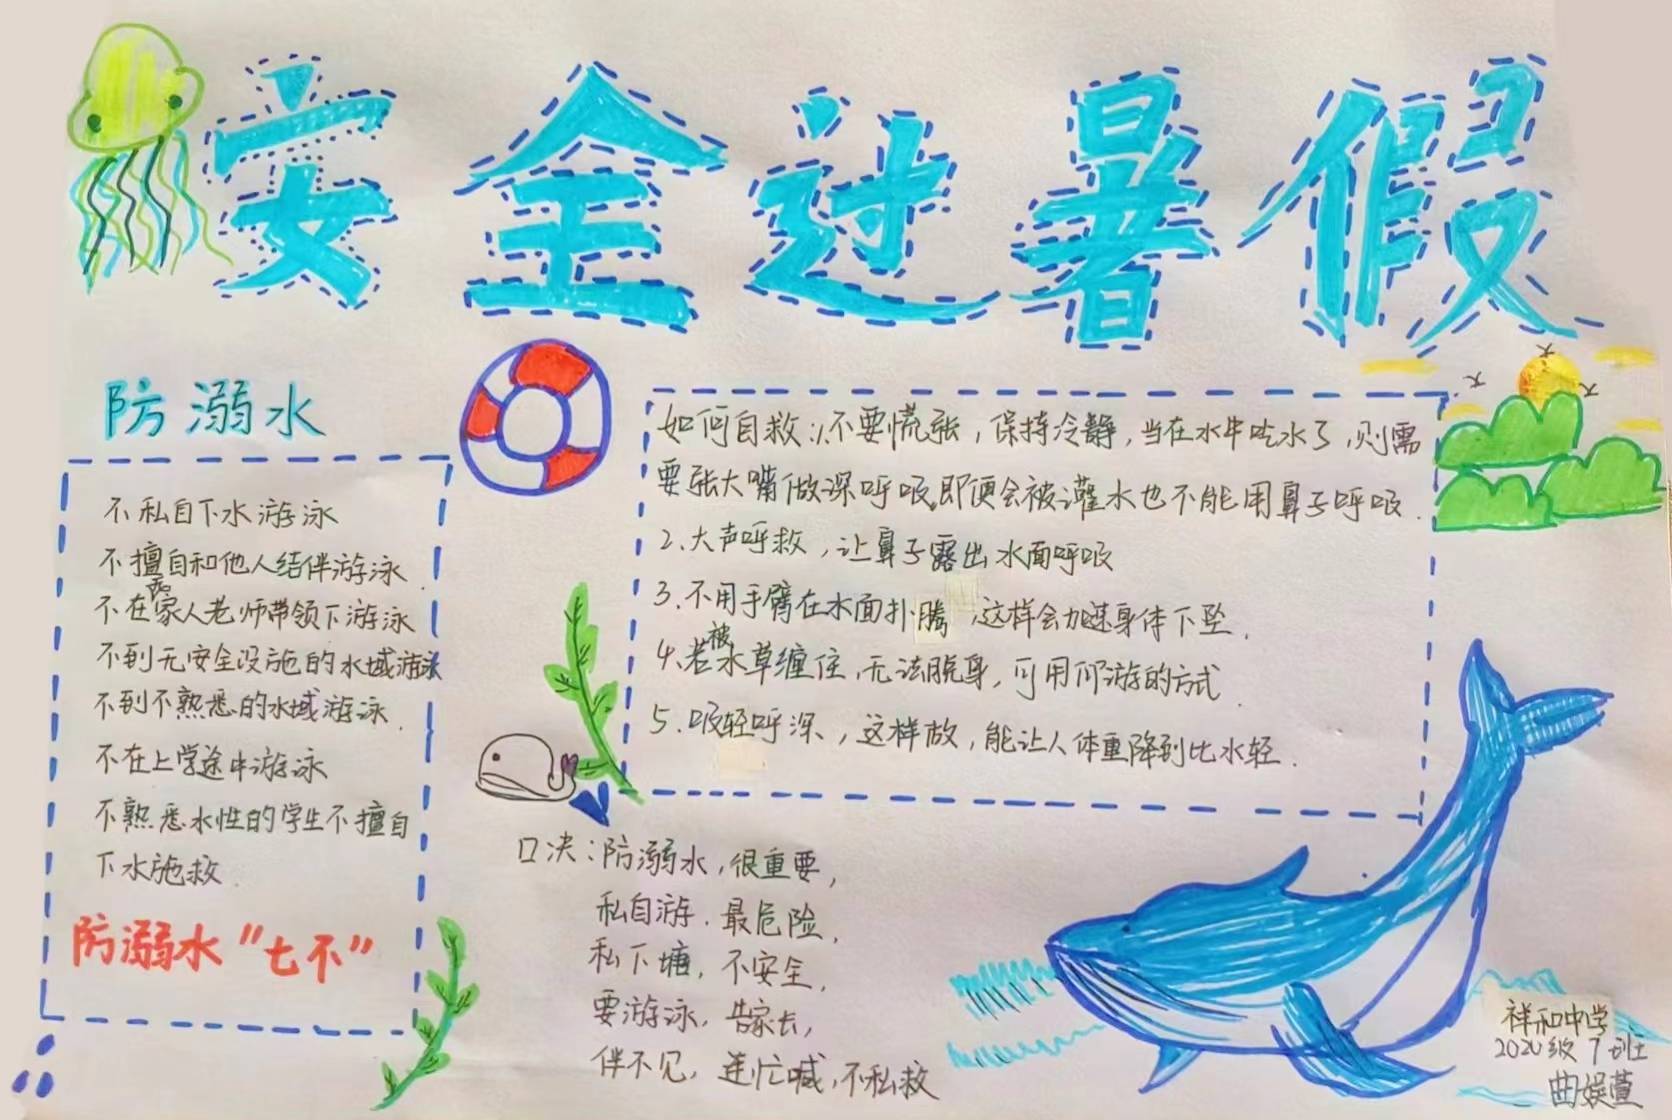 安全过暑假
防溺水
不私自下水游泳
不擅自和他人结伴游泳.
不在无家人老师带领下游泳
不到无安全设施的水域游泳
不到不熟悉的水域游泳.
不在上学途中游泳
不熟悉水性的学生不擅自
下水施救.
防溺水"七不"
如何自救:1.不要慌张,保持冷静,当在水中吃水了,则需
要张大嘴做深呼吸,即便会被灌水也不能用鼻子呼吸.
2.大声呼救,让鼻子露出水面呼吸
3.不用手臂在水面扑腾,这样会加速身体下坠.
4.若被水草缠住,无法脱身,可用仰游的方式.
5.吸轻呼深,这样做,能让人体重降到比水轻.
口决:防溺水,很重要,
私自游.最危险,
私下塘,不安全,
要游泳,告家长,
伴不见,连忙喊,不私救
祥和中学
2020级7班
曲娱萱